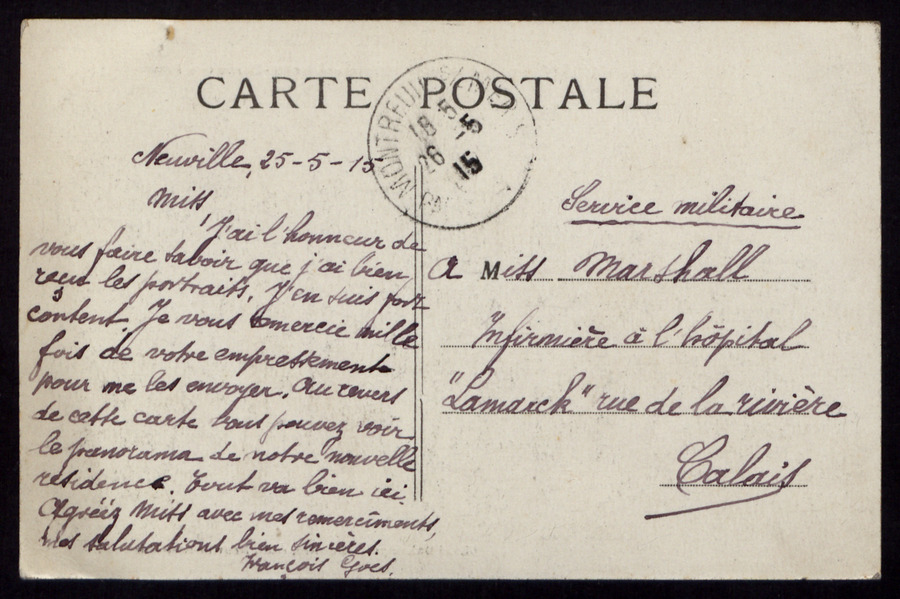 CARTE POSTALE
MONTREUIL S/ MER
18 45
26 -5
15
Neuville, 25-5-15
Miss
J'ai l'honneur de
vous faire savoir que j'ai bien
reçu les portraits. J'en suis fort
content. Je vous remercie mille
fois de votre empressement
pour me les envoyer. Au revers
de cette carte vous pouvez voir
le panorama de notre nouvelle
résidence. Tout va bien ici
Agréiz Miss avec mes remercîments,
mes salutations bien sincères.
François
Service militaire
A Miss Marshall
Infirmière à l'hôpital
"Lamarck" rue de la rivière
Calais